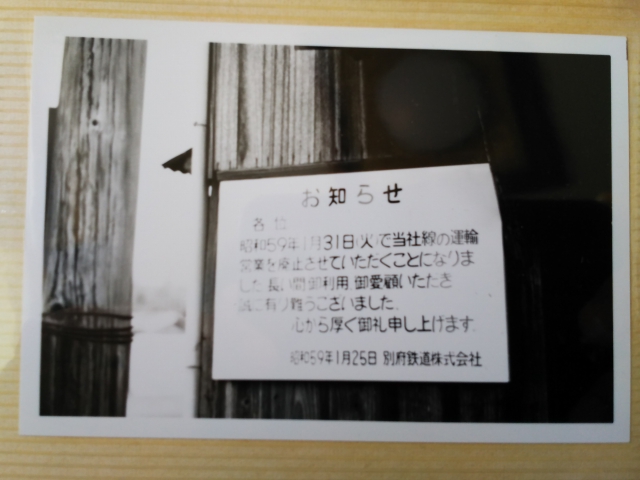 お知らせ
各位
昭和59年1月31日(火)で当社線の運輸
営業を廃止させていただくことになりま
した.長い間御利用.御愛顧いただき
誠に有り難うございました.
心から厚く御礼申し上げます.
昭和59年1月25日 別府鉄道株式会社